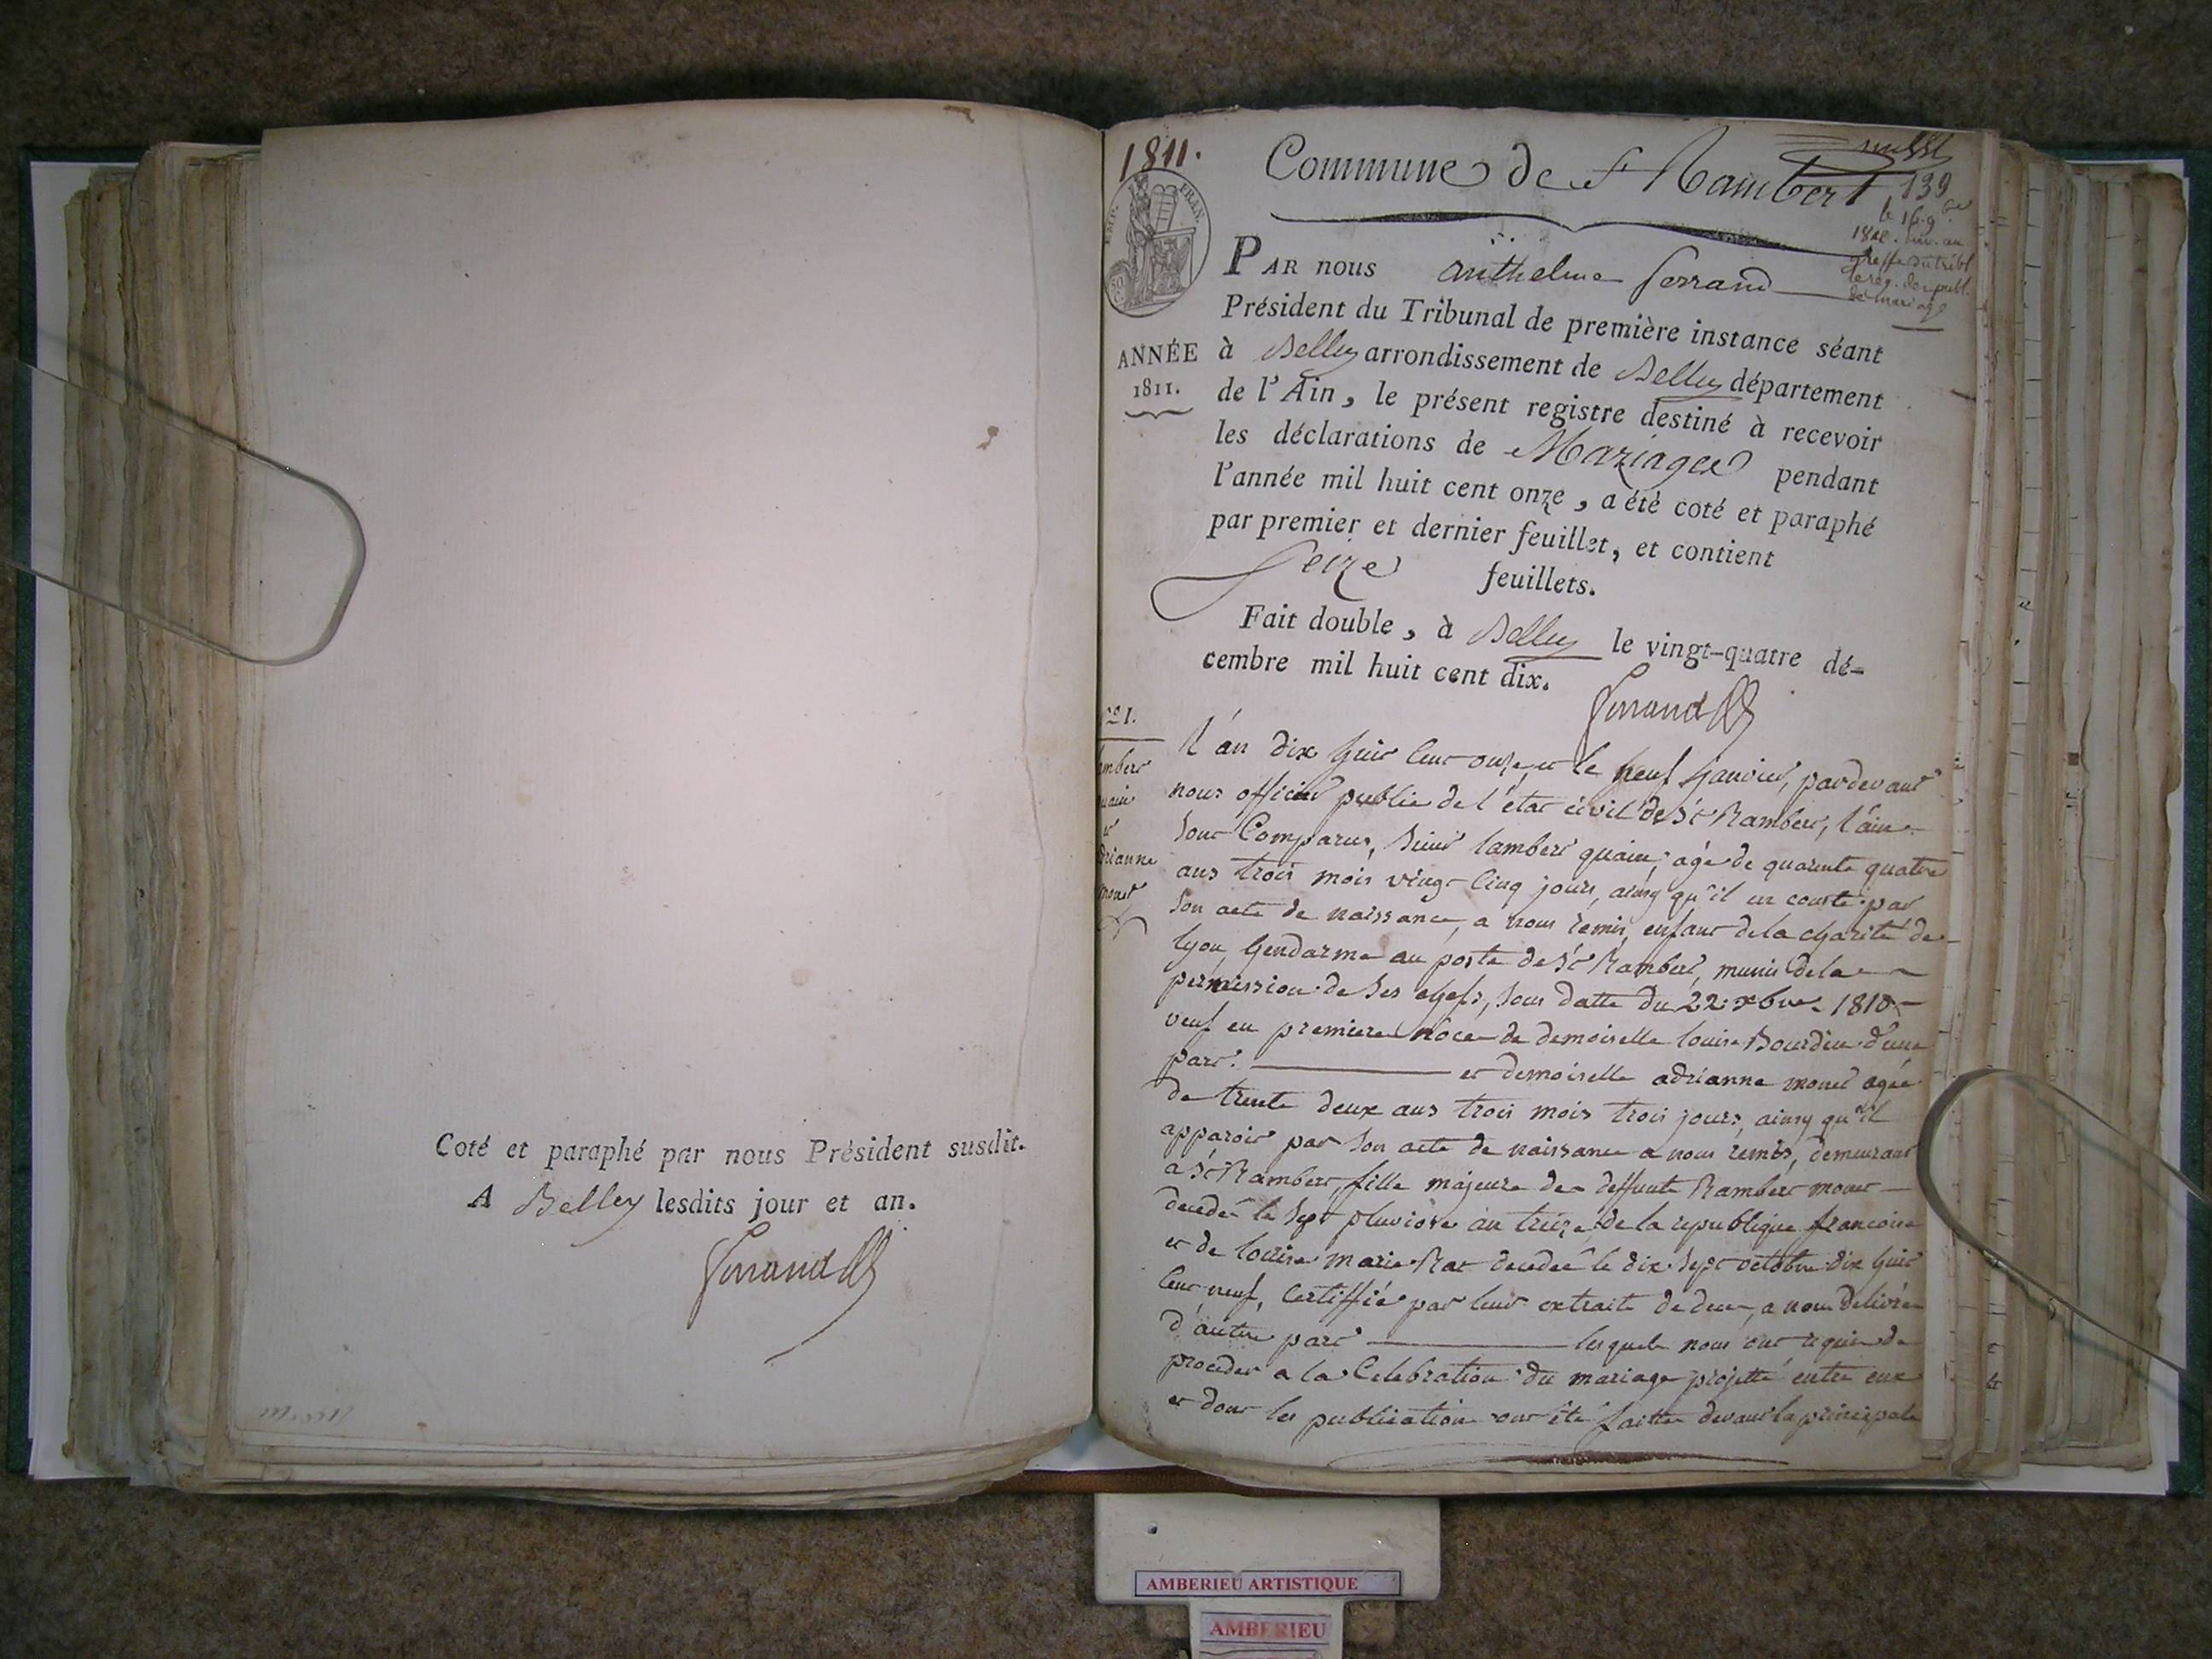 Coté et paraphé par nous Président susdit.
A Belley lesdits jour et an.
Ferrand
1811.
Commune de St Rambert
139
le 16. 9bre
EMP. FRAN.
ANNÉE
1811.
PAR nous anthelme ferrand
Président du Tribunal de première instance séant
à Belley arrondissement de Belley département
de l'Ain, le présent registre destiné à recevoir
les déclarations de Mariages pendant
l'année mil huit cent onze, a été coté et paraphé
par premier et dernier feuillet, et contient
Seize feuillets.
Fait double, à Belley le vingt-quatre dé-
cembre mil huit cent dix.
Ferrand
No 1.
L'an dix huit cent onze, et le neuf janvier, pardevant
nous officier public de l'état civil de St Rambert, l'ain
sont Comparus, Sieur lambert quain, agé de quarente quatre
ans trois mois vingt cinq jours, ainsy qu'il en conste par
son acte de naissance, a nous remis, enfant de la charité de
lyon, Gendarme au poste de St Rambert, munis de la
permission de ses chefs, sous datte du 22. xbre 1810
veuf en premiere noce de demoiselle louise Bourdin d'une
part. et demoiselle adrianne monet agée
de trente deux ans trois mois trois jours, ainsy qu'il
apparoit par son acte de naissance a nous remis, demeurant
a St Rambert, fille majeure de deffunte Rambert monet
decedé le sept pluviose an treize de la republique francoise
et de louise marie Rat decedée le dix sept octobre dix huit
cent neuf, certiffié par leur extraits de deces, a nous délivrés
d'autre part lesquels nous ont requis de
proceder a la Celebration du mariage projetté entre eux
et dont les publication ont été faitte devant la principale
AMBERIEU ARTISTIQUE
AMBERIEU